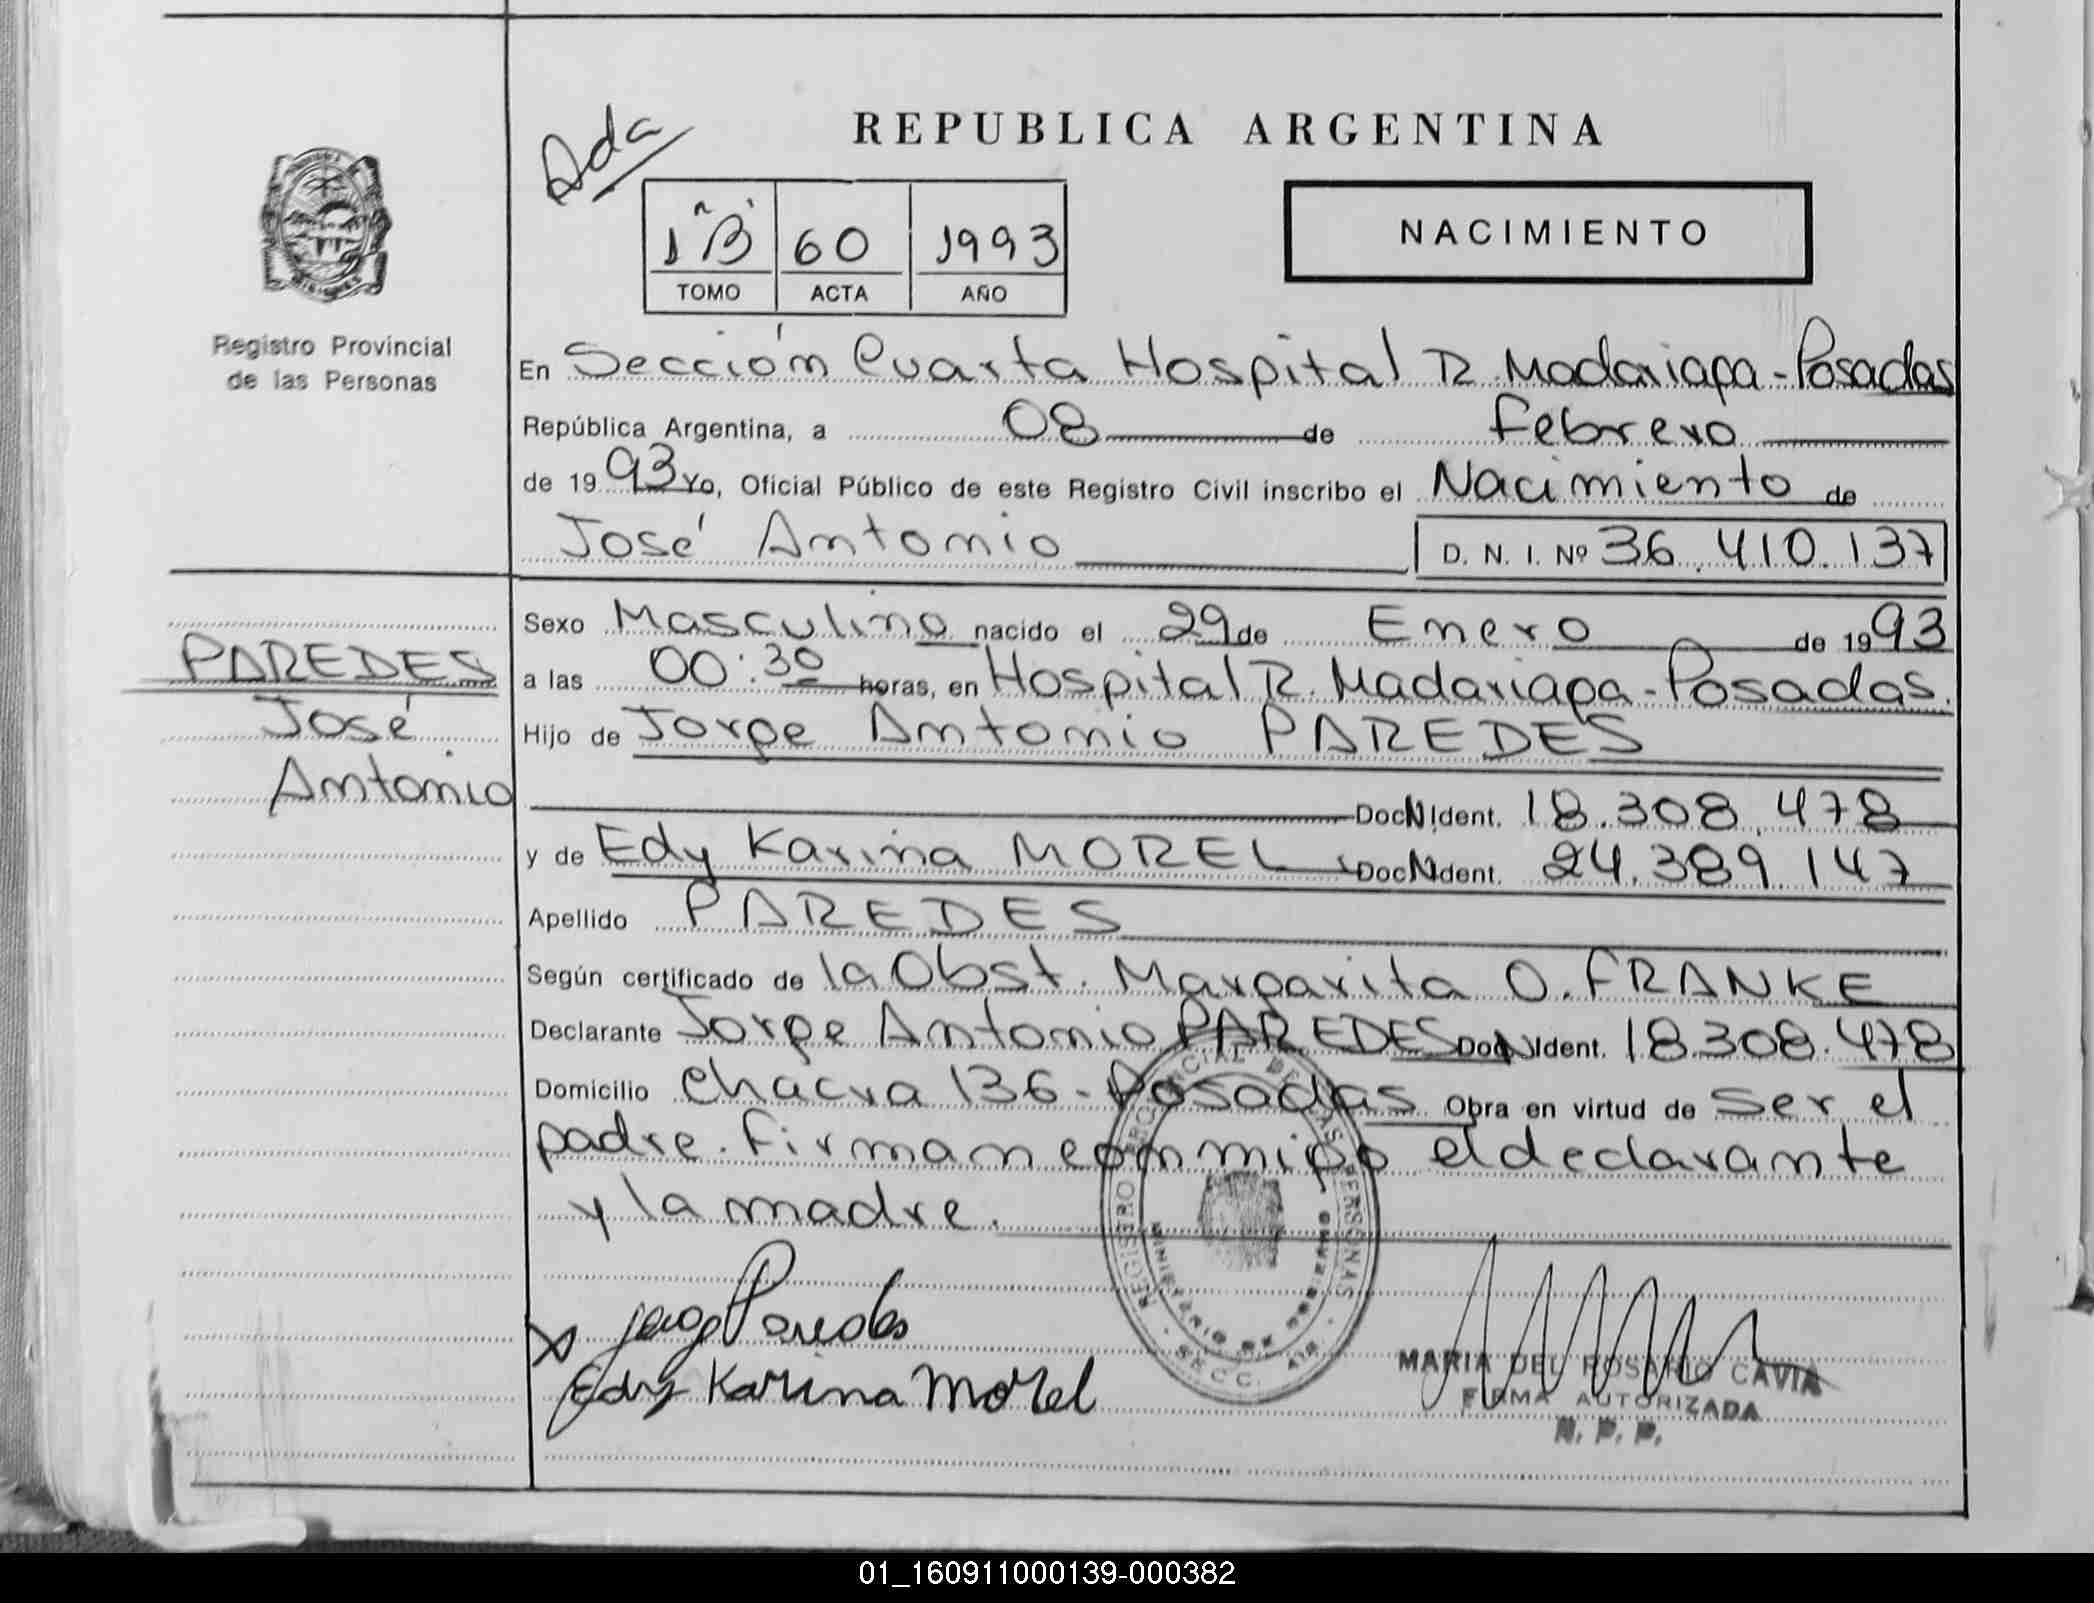 Ada
REPUBLICA ARGENTINA
1 "B" 60 1993
TOMO ACTA AÑO
NACIMIENTO
Registro Provincial
de las Personas
En Sección Cuarta Hospital R. Madariaga - Posadas
República Argentina, a 08 de Febrero
de 1993 Yo, Oficial Público de este Registro Civil inscribo el Nacimiento de
José Antonio D. N. I. Nº 36.410.137
PAREDES
José
Antonio
Sexo Masculino nacido el 29 de Enero de 1993
a las 00:30 horas, en Hospital R. Madariaga - Posadas.
Hijo de Jorge Antonio PAREDES
Doc N Ident. 18.308.478
y de Edy Karina MOREL Doc N Ident. 24.389.147
Apellido PAREDES
Según certificado de la Obst. Margarita O. FRANKE
Declarante Jorge Antonio PAREDES Doc N Ident. 18.308.478
Domicilio Chacra 136 - Posadas Obra en virtud de ser el
padre. Firman conmigo el declarante
y la madre.
REGISTRO PROVINCIAL DE LAS PERSONAS
MINISTERIO DE GOBIERNO
SECC.
Jorge Paredes
Edy Karina Morel
MARIA DEL ROSARIO CAVIA
FIRMA AUTORIZADA
R. P. P.
01_160911000139-000382